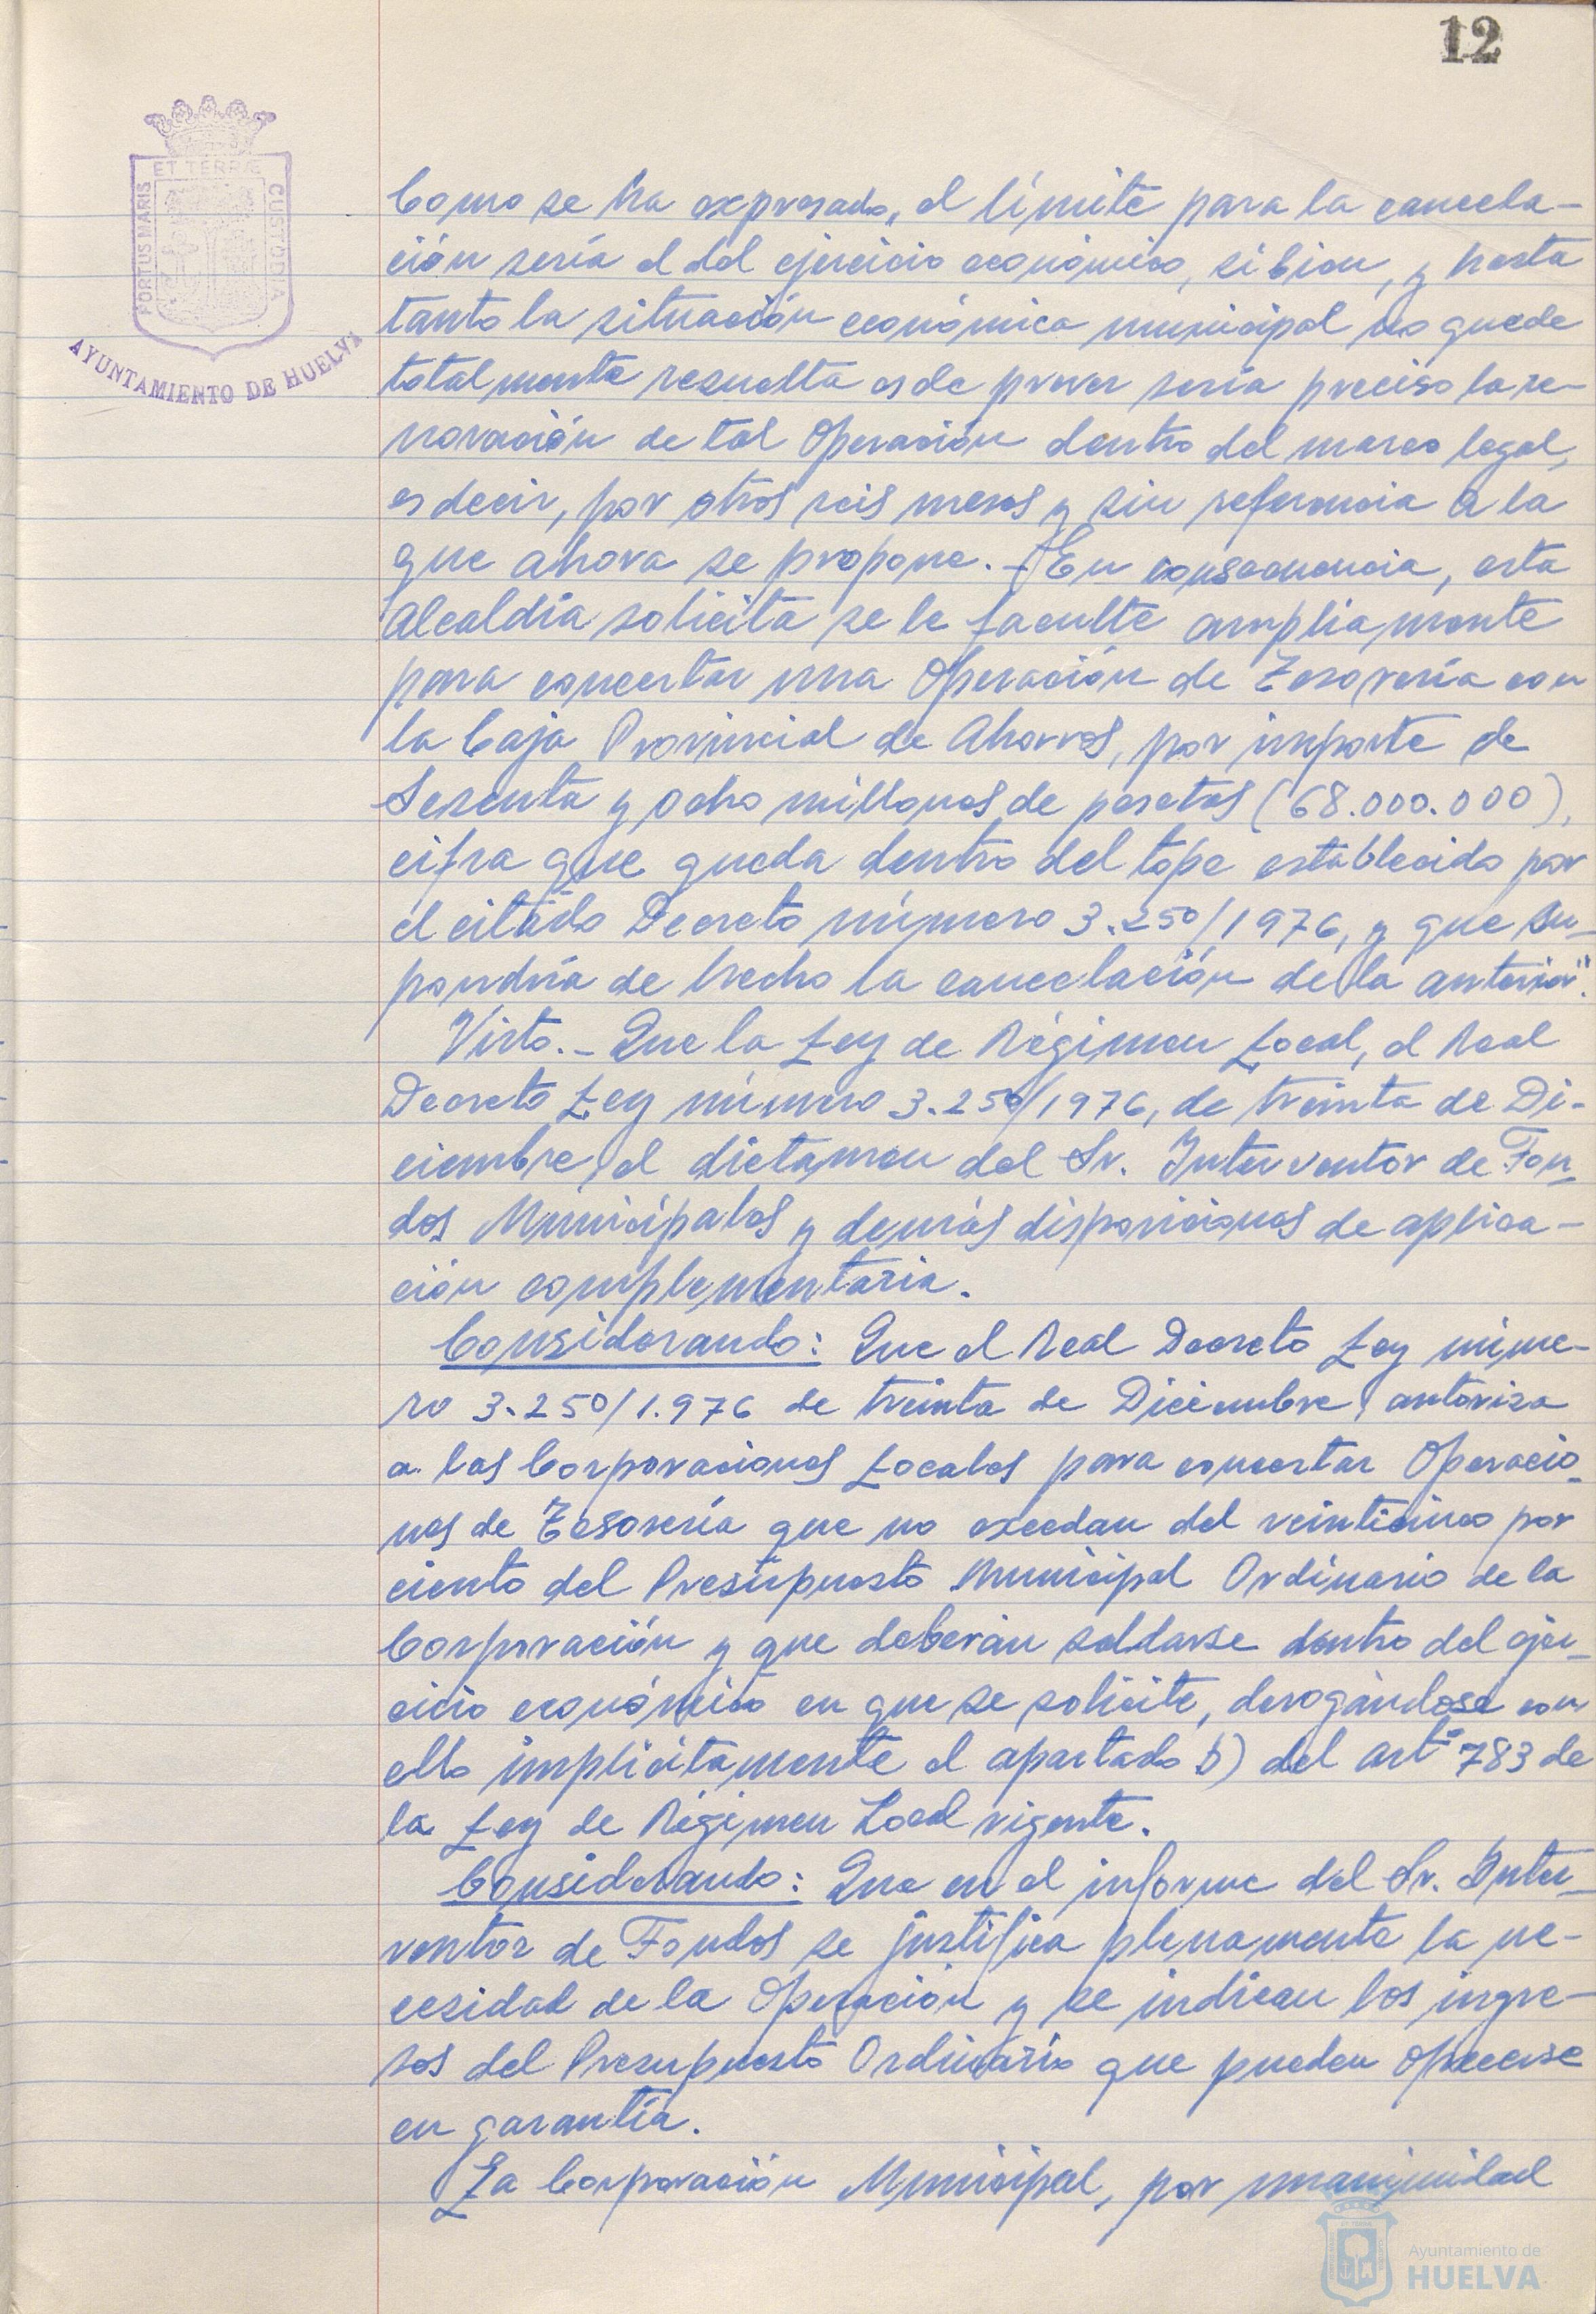 12
PORTUS MARIS
ET TERRÆ
CUSTODIA
AYUNTAMIENTO DE HUELVA
Como se ha expresado, el límite para la cancela-
ción sería el del ejercicio económico, si bien, y hasta
tanto la situación económica municipal no quede
totalmente resuelta es de prever sería preciso la re-
novación de tal Operación dentro del marco legal,
es decir, por otros seis meses y sin referencia a la
que ahora se propone.- En consecuencia, esta
Alcaldía solicita se le faculte ampliamente
para concertar una Operación de Tesorería con
la Caja Provincial de Ahorros, por importe de
Sesenta y ocho millones de pesetas (68.000.000),
cifra que queda dentro del tope establecido por
el citado Decreto número 3.250/1976, y que su-
pondría de hecho la cancelación de la anterior".
Visto.- Que la Ley de Régimen Local, el Real
Decreto Ley número 3.250/1976, de treinta de Di-
ciembre, el dictamen del Sr. Interventor de Fon-
dos Municipales y demás disposiciones de aplica-
ción complementaria.
Considerando: Que el Real Decreto Ley núme-
ro 3.250/1.976 de treinta de Diciembre, autoriza
a las Corporaciones Locales para concertar Operacio-
nes de Tesorería que no excedan del veinticinco por
ciento del Presupuesto Municipal Ordinario de la
Corporación y que deberán saldarse dentro del ejer-
cicio económico en que se solicite, derogándose con
ello implícitamente el apartado b) del artº 783 de
la Ley de Régimen Local vigente.
Considerando: Que en el informe del Sr. Inter-
ventor de Fondos se justifica plenamente la ne-
cesidad de la Operación y se indican los ingre-
sos del Presupuesto Ordinario que pueden ofrecerse
en garantía.
La Corporación Municipal, por unanimidad
Ayuntamiento de
HUELVA